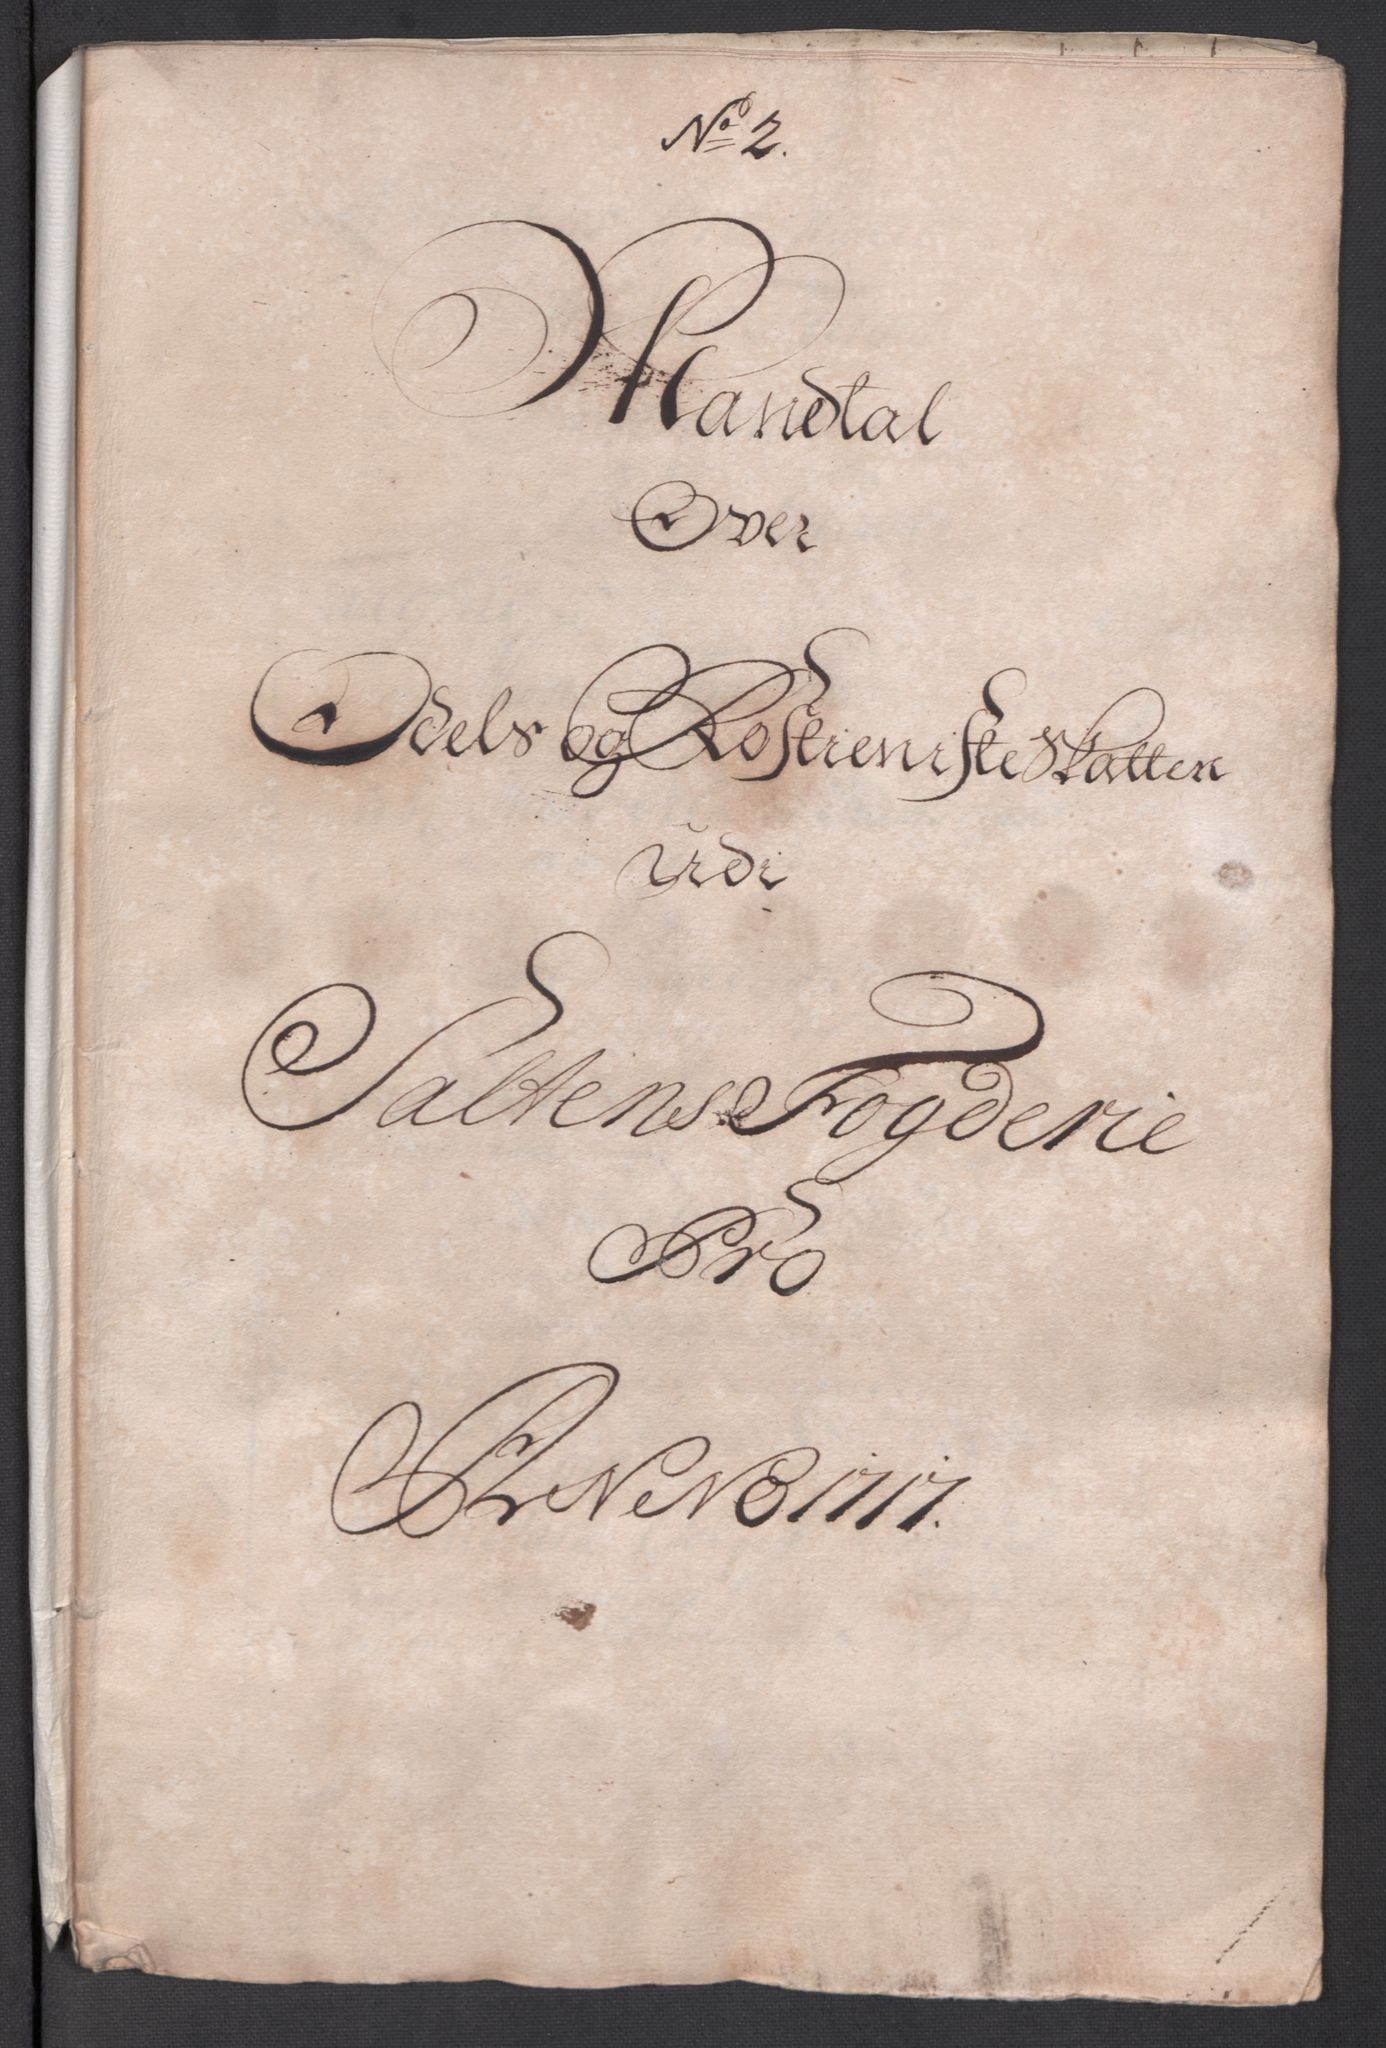 No 2.
Mandtal
Over
Odels og Rostieniste Skatten
udi
Saltens Fogderie
Pro
Anno 1717.